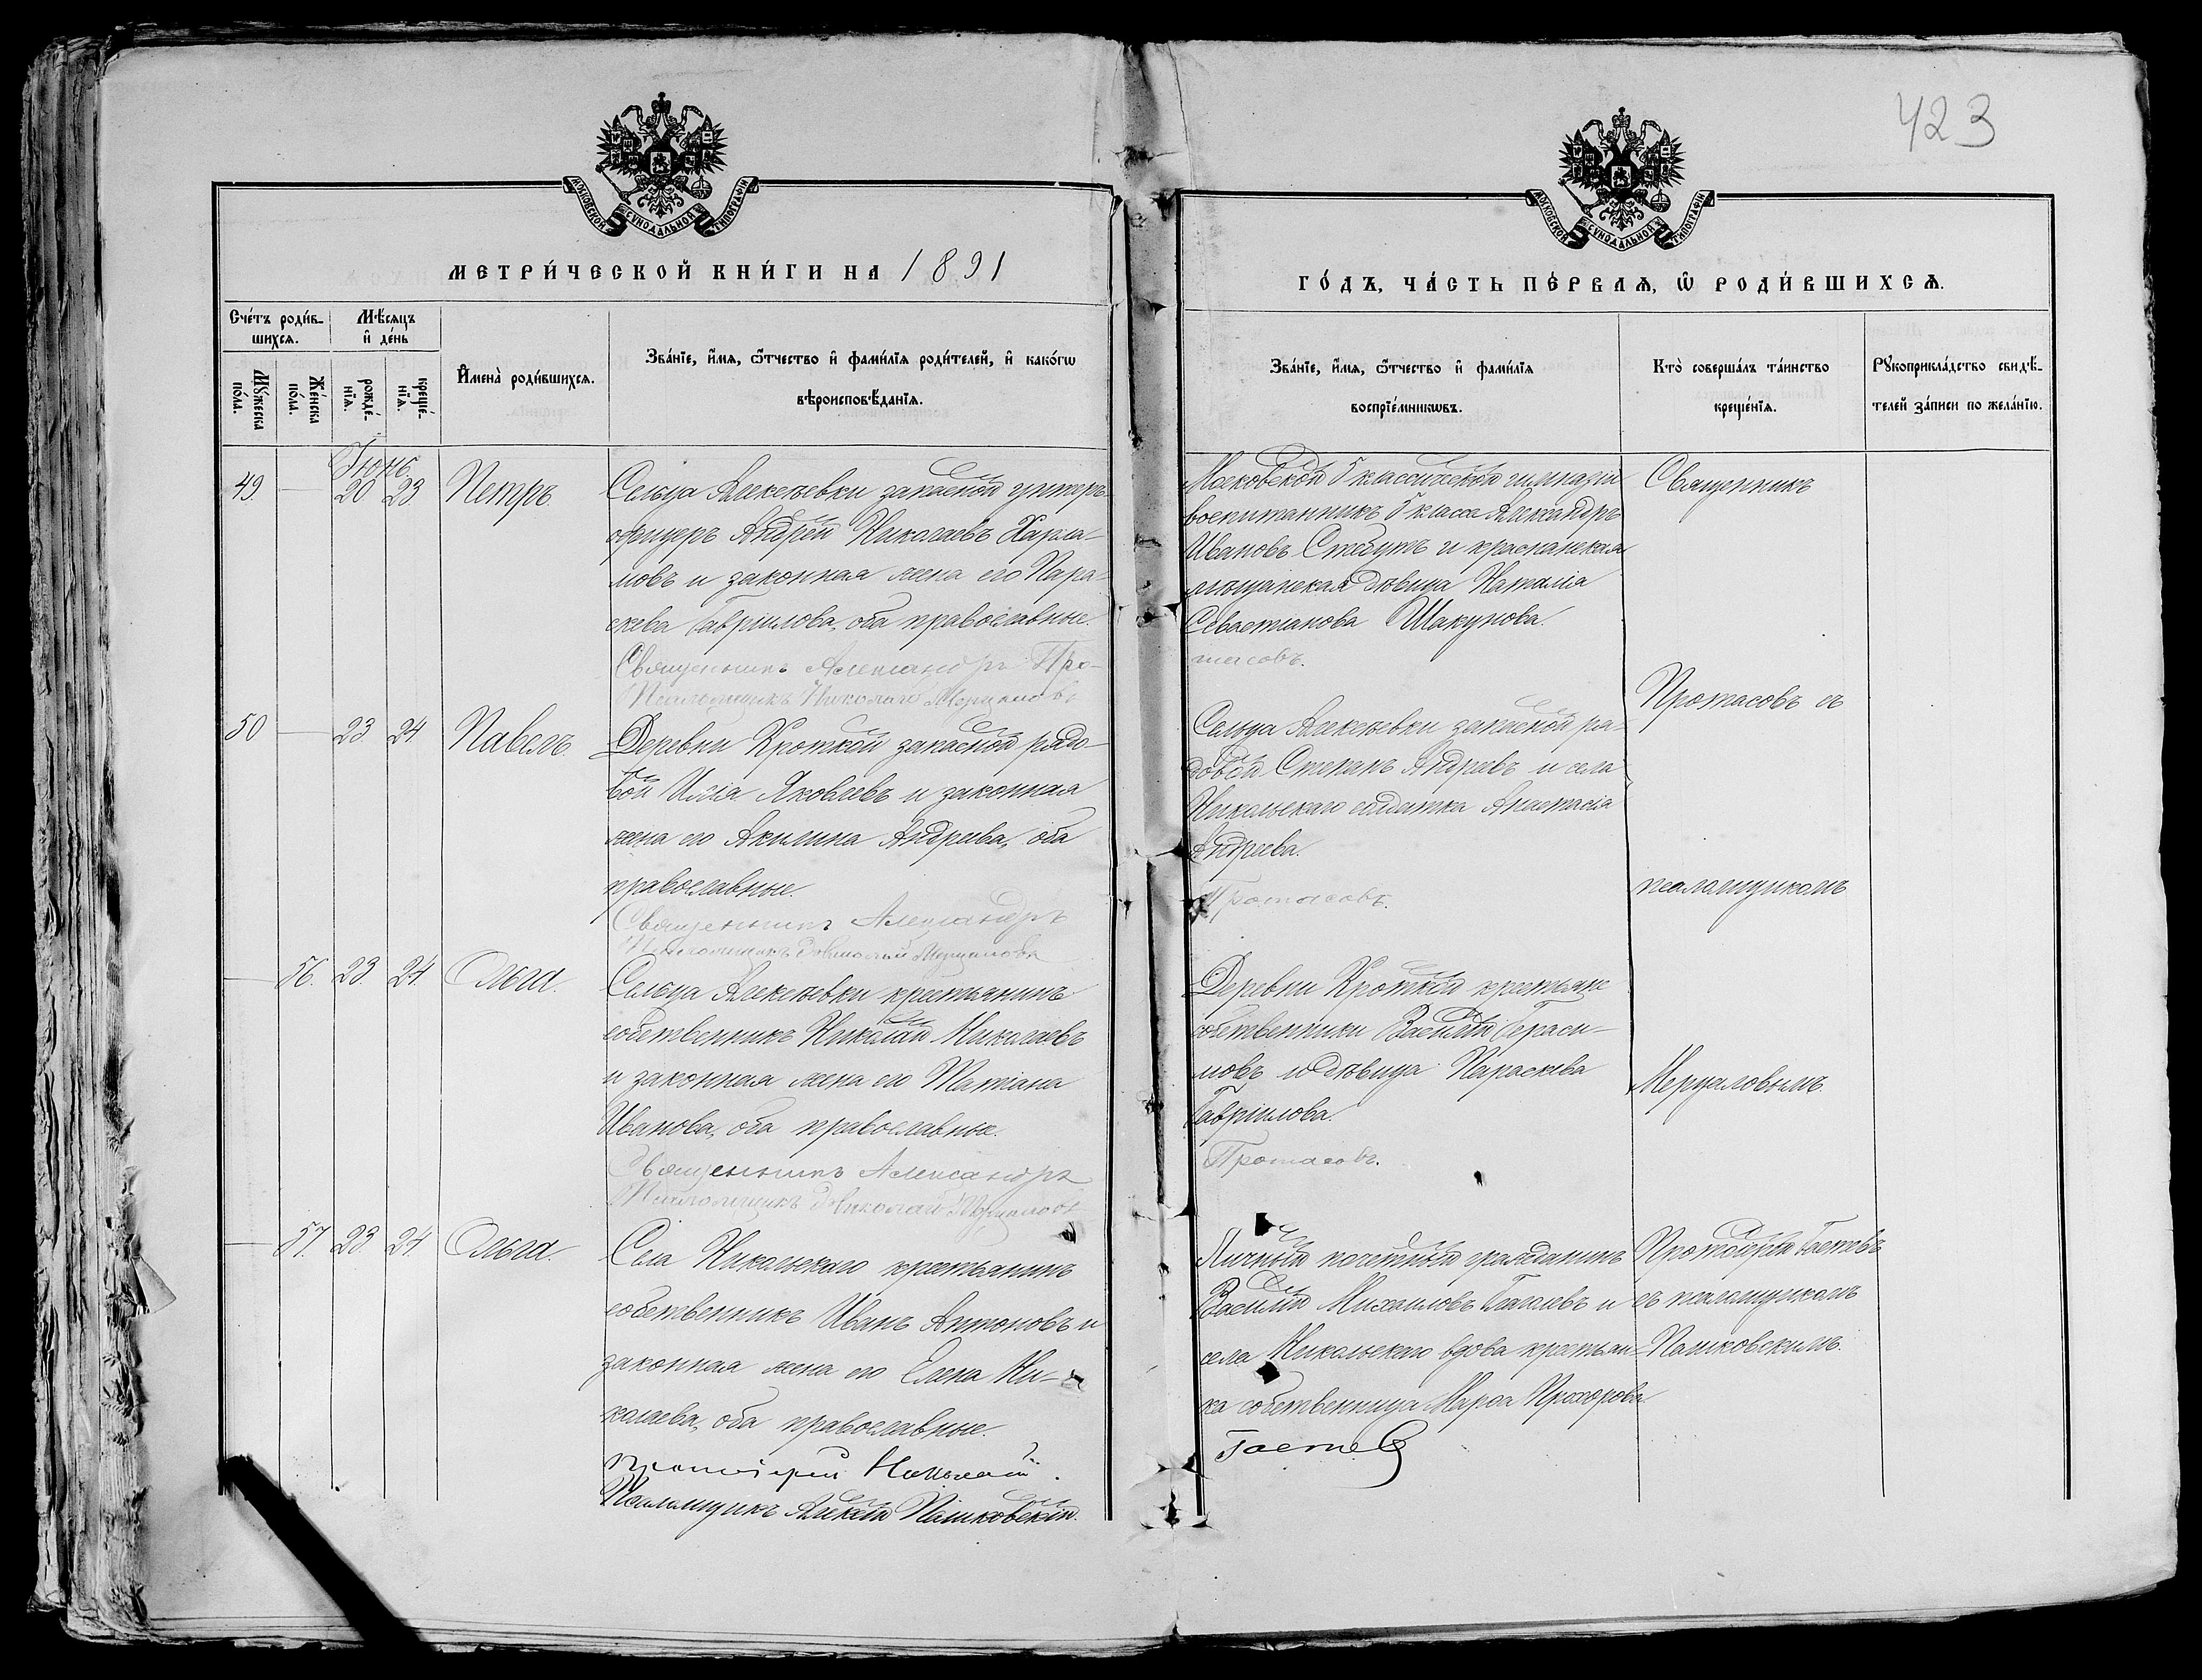 423
МОСКОВСКОЙ СѴНОДАЛЬНОЙ ТИПОГРАФІИ
МОСКОВСКОЙ СѴНОДАЛЬНОЙ ТИПОГРАФІИ
МЕТРИ́ЧЕСКОЙ КНИ́ГИ НА 1891
ГО́ДЪ, ЧА́СТЬ ПЕ́РВАѦ, Ѡ҆ РОДИ́ВШИХСѦ.
Сче́тъ роди́в-
шихсѧ.
Мѣ́сяцъ
и҆ де́нь
Мꙋ́жеска
по́ла.
Же́нска
по́ла.
рожде́-
нїѧ.
креще́-
нїѧ.
И҆мена̀ роди́вшихсѧ.
Зва́нїе, и҆́мѧ, ѻ҆́тчество и҆ фами́лїѧ роди́телей, и҆ како́гѡ
вѣроисповѣ́данїѧ.
Зва́нїе, и҆́мѧ, ѻ҆́тчество и҆ фами́лїѧ
воспрїе́мникѡвъ.
Кто̀ соверша́лъ та́инство
креще́нїѧ.
Рꙋкоприкла́дство свидѣ́-
телей за́писи по жела́нїю.
Іюнь.
49. — 20 23. Петръ.
Сельца Алексѣевки запасной унтеръ-
офицеръ Андрей Николаевъ Харла-
мовъ и законная жена его Пара-
скева Гаврилова, оба православные.
Священникъ Александръ Про-
Псаломщикъ Николай Мерцаловъ
Московской 5 классической гимназіи
воспитанникъ 5 класса Александръ
Ивановъ и
мѣщанская дѣвица Наталія
Севастіанова Шакунова.
тасовъ.
Священникъ
50 — 23. 24 Павелъ.
Деревни Кроткой запасной рядо-
вой Илія Яковлевъ и законная
жена его Акилина Андреева, оба
православные.
Священникъ Александръ
Псаломщикъ Николай Мерцаловъ
Сельца Алексѣевки запасной ря-
довой Стефанъ Андреевъ и села
Никольскаго солдатка Анастасія
Андреева.
Протасовъ.
Протасовъ съ
псаломщикомъ
— 56. 23. 24. Ольга.
Сельца Алексѣевки крестьянинъ
собственникъ Николай Николаевъ
и законная жена его Татіана
Иванова, оба православные.
Священникъ Александръ
Псаломщикъ Николай Мерцаловъ
Деревни Кроткой крестьяне
собственники Василій Гераси-
мовъ и дѣвица Параскева
Гаврилова.
Протасовъ.
Мерцаловымъ.
— 57. 23. 24. Ольга.
Села Никольскаго крестьянинъ
собственникъ Иванъ Антоновъ и
законная жена его Елена Ни-
колаева, оба православные.
Протоіерей Николай
Псаломщикъ Алексій Пашковскій.
Личный почетный гражданинъ
Василій Михаиловъ и
села Никольскаго вдова крестьян-
ка собственница Марѳа Прохорова.
Гастевъ
Протоіерей Гастевъ
съ псаломщикомъ
Пашковскимъ.